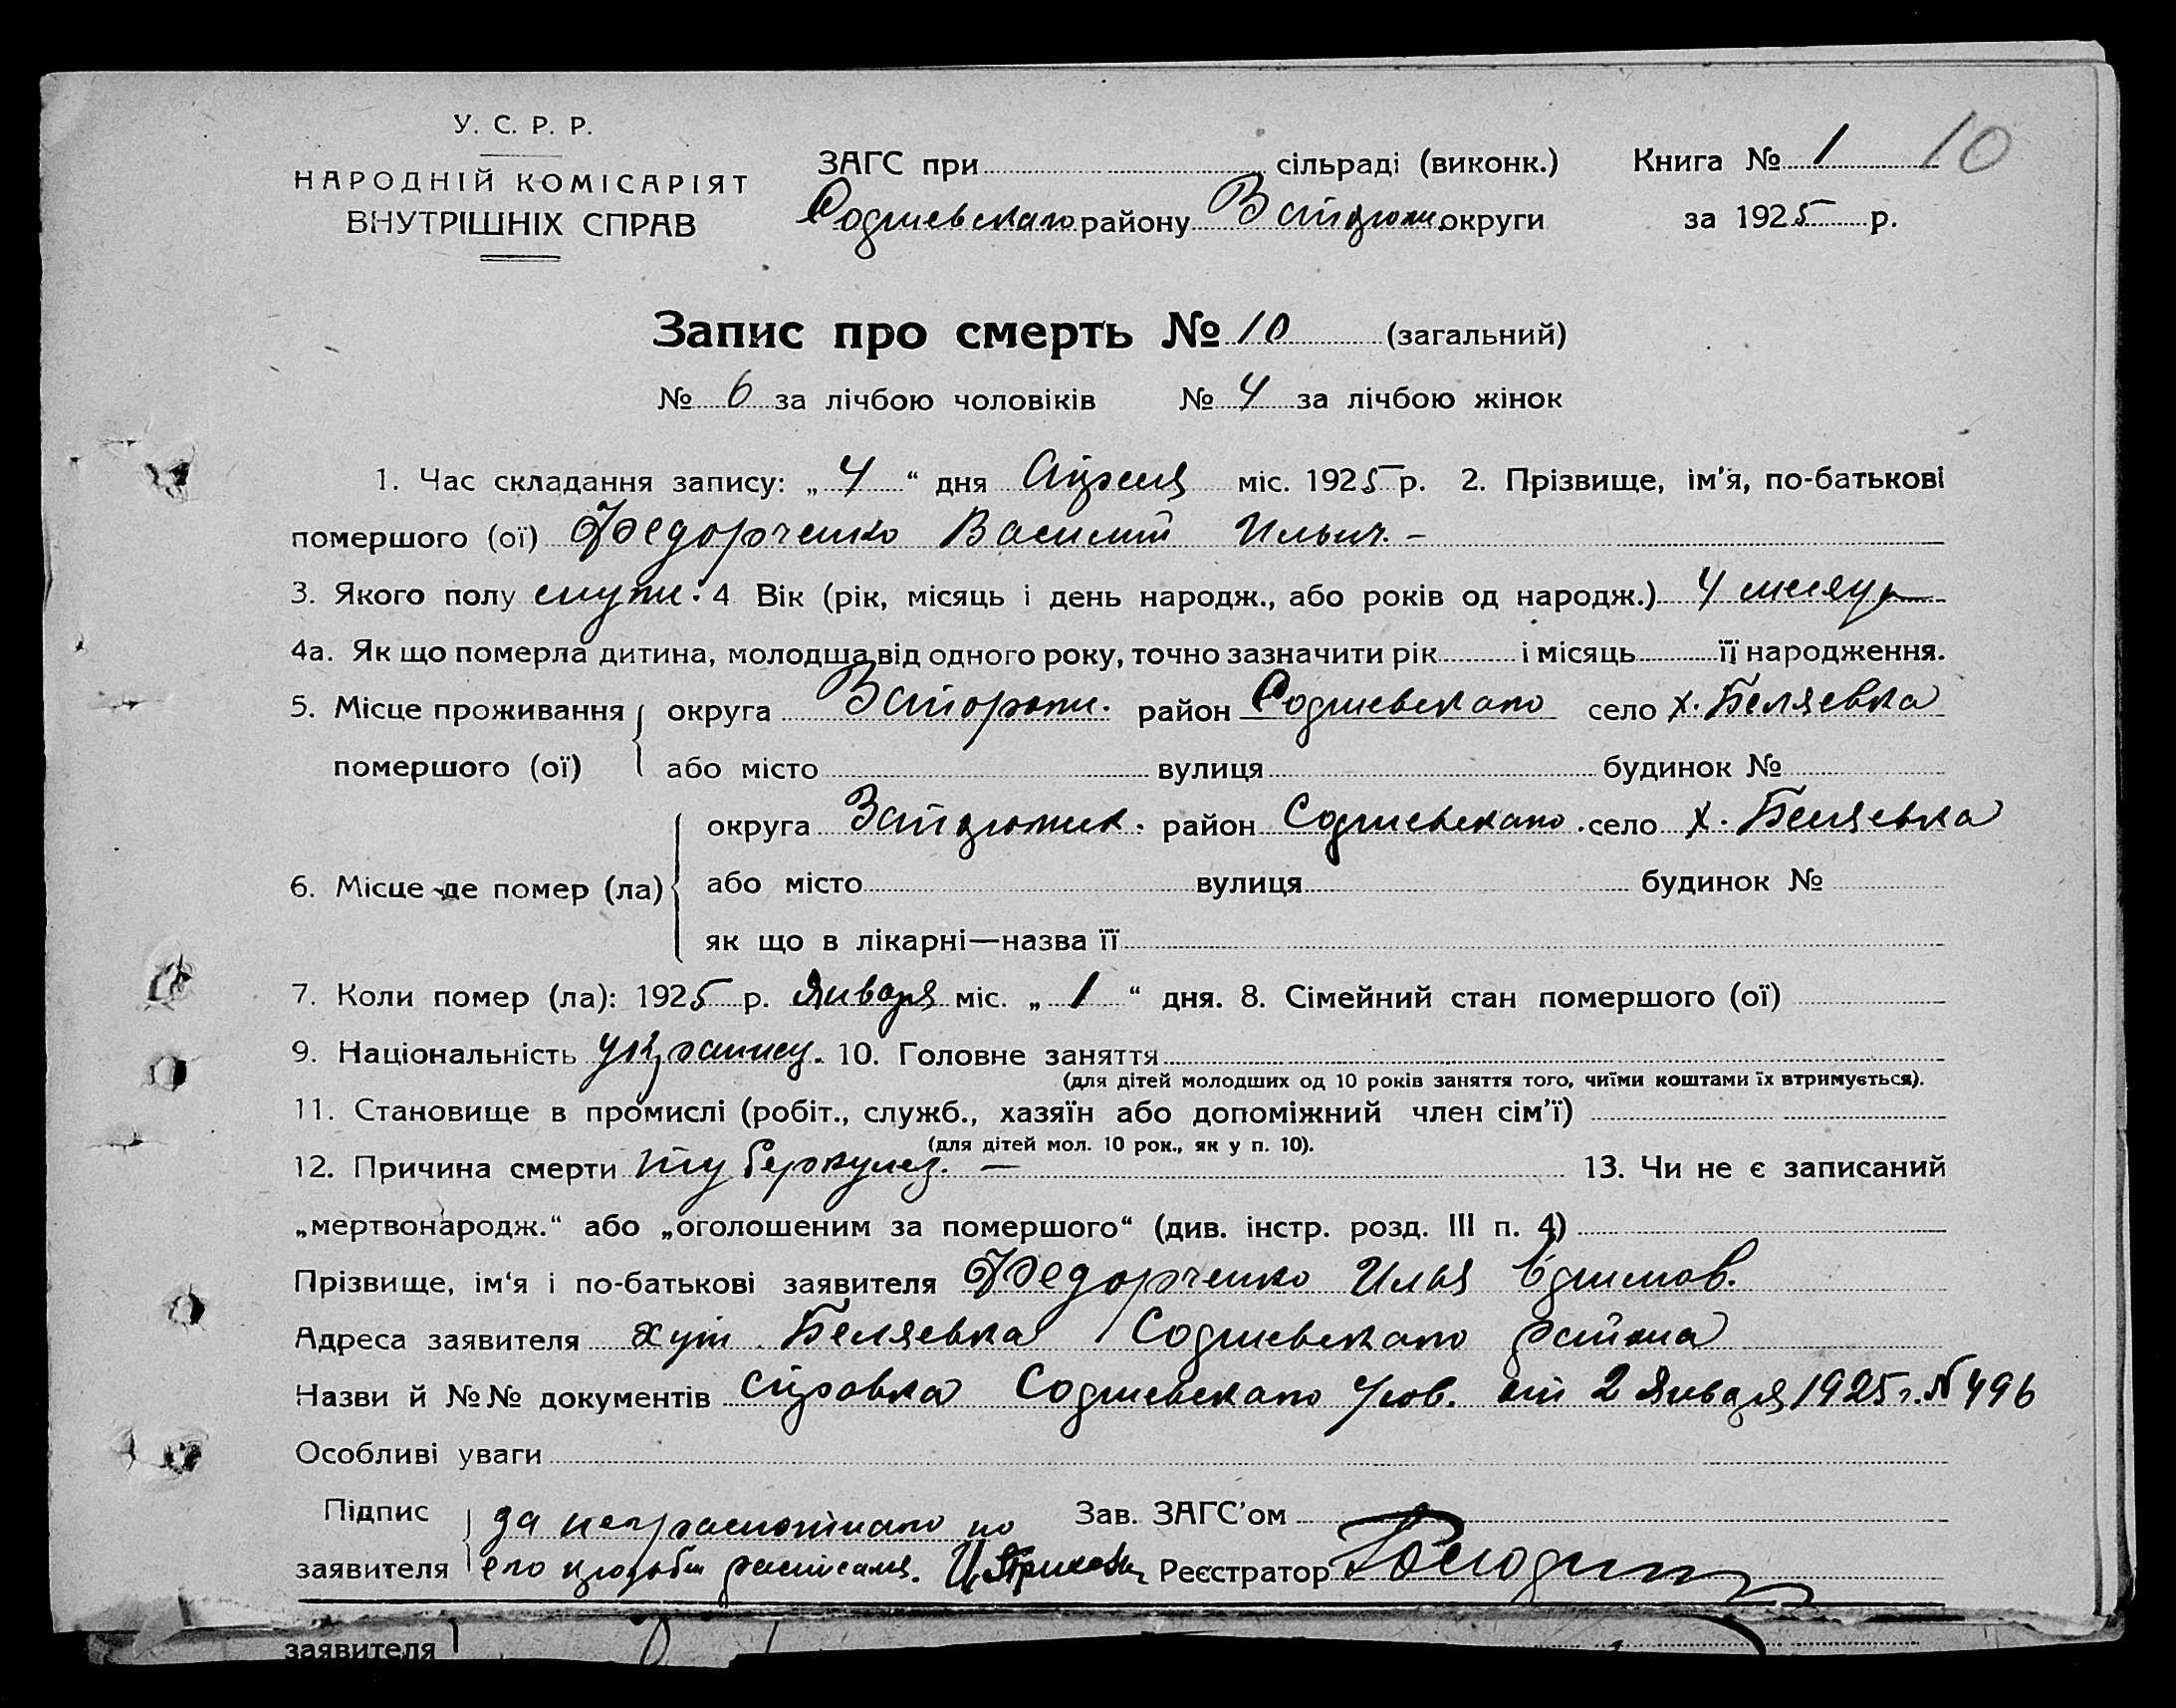 У. С. Р. Р.
НАРОДНІЙ КОМІСАРІЯТ
ВНУТРІШНІХ СПРАВ
ЗАГС при сільраді (виконк.)
Софиевскаго району Запорож. округи
Книга № 1 10
за 1925 р.
Запис про смерть № 10 (загальний)
№ 6 за лічбою чоловіків № 4 за лічбою жінок
1. Час складання запису: „ 4 “ дня Апреля міс. 1925 р. 2. Прізвище, ім'я, по-батькові
помершого (ої) Федорченко Василий Ильич. –
3. Якого полу муж. 4 Вік (рік, місяць і день народж., або років од народж.) 4 месяц
4а. Як що померла дитина, молодша від одного року, точно зазначити рік і місяць її народження.
5. Місце проживання округа Запорож. район Софиевскаго село х. Беляевка
помершого (ої) або місто вулиця будинок №
округа Запорожск. район Софиевскаго село х. Беляевка
6. Місце де помер (ла) або місто вулиця будинок №
як що в лікарні—назва її
7. Коли помер (ла): 1925 р. Января міс. „ 1 “ дня. 8. Сімейний стан помершого (ої)
9. Національність украинец. 10. Головне заняття
(для дітей молодших од 10 років заняття того, чиїми коштами їх втримується).
11. Становище в промислі (робіт., служб., хазяїн або допоміжний член сім'ї)
(для дітей мол. 10 рок., як у п. 10).
12. Причина смерти туберкулез. – 13. Чи не є записаний
„мертвонародж.“ або „оголошеним за помершого“ (див. інстр. розд. III п. 4)
Прізвище, ім'я і по-батькові заявителя Федорченко Илья Ефимов.
Адреса заявителя хут. Беляевка Софиевскаго района
Назви й №№ документів справка Софиевскаго от 2 Января 1925 г. № 496
Особливі уваги
Підпис за неграмотнаго по Зав. ЗАГС'ом
заявителя его прозьби росписался. Реєстратор
заявителя